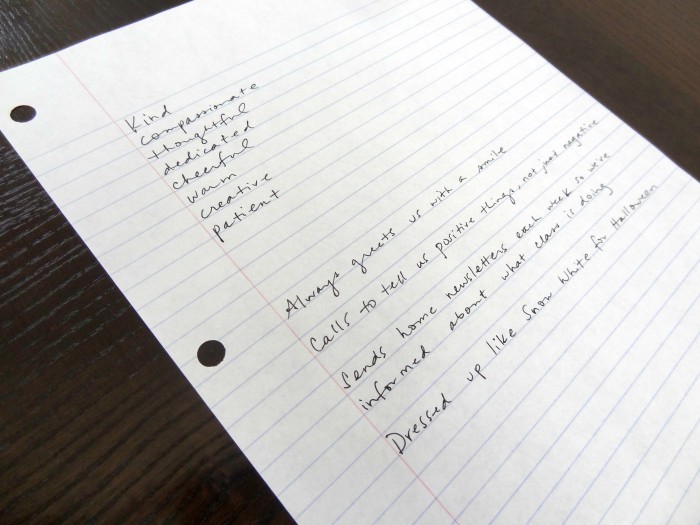 Kind
compassionate
thoughtful
dedicated
cheerful
warm
creative
patient
Always greets us with a smile
Calls to tell us positive things, not just negative
Sends home newsletters each week so we're
informed about what class is doing
Dressed up like Snow White for Halloween